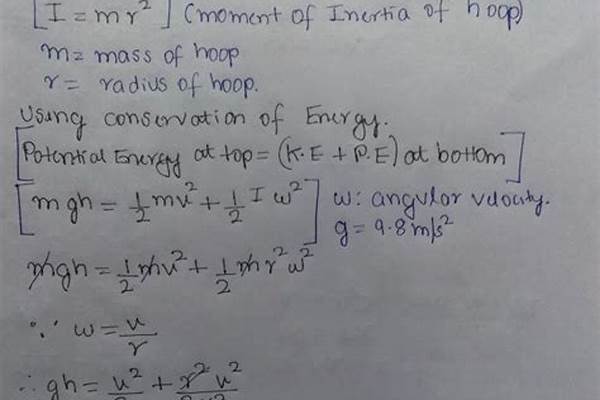 [I = mr²] (moment of Inertia of hoop)
m = mass of hoop
r = radius of hoop.
Using conservation of Energy.
[Potential Energy at top = (K.E + P.E) at bottom]
[mgh = 1/2 mu² + 1/2 I ω²] ω: angular velocity.
g = 9.8 m/s²
mgh = 1/2 mu² + 1/2 m r² ω²
∵ ω = u/r
∴ gh = u²/2 + r² u²